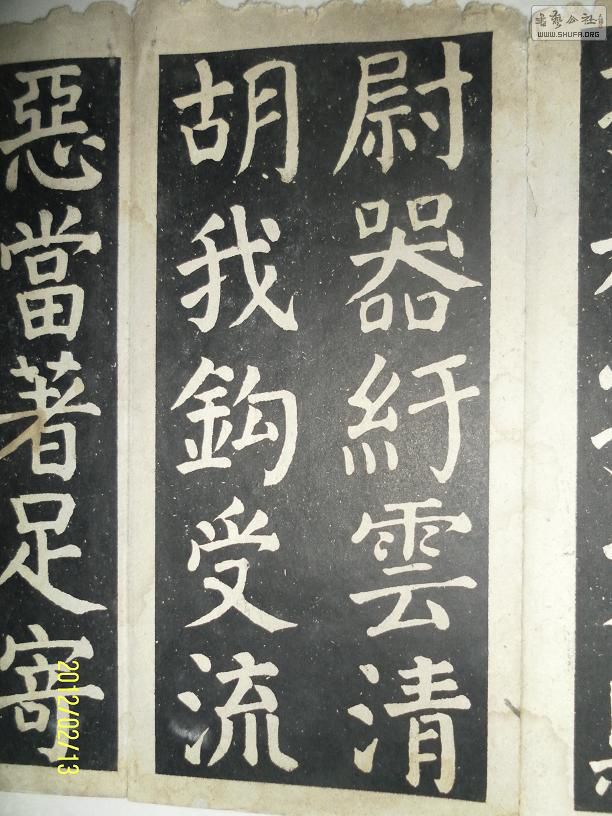 尉器紆雲清
胡我鈎受流
惡當著足寄
2012/02/13
WWW.SHUFA.ORG